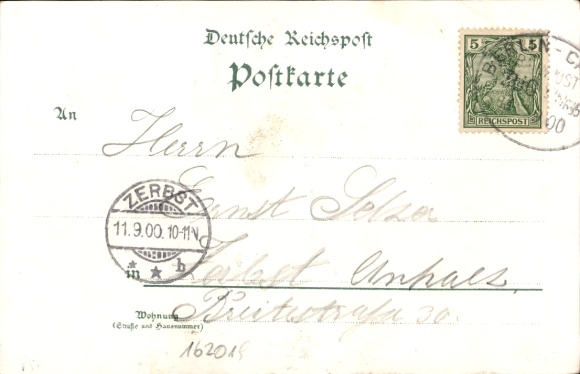 Deutsche Reichspost
Postkarte
5 5
REICHSPOST
BERLIN - CA
00
An
Herrn
Ernst
Zerbst Anhalt
Breitestraße 30.
ZERBST
11.9.00. 10-11V.
* * b
Wohnung
(Straße und Hausnummer)
16201